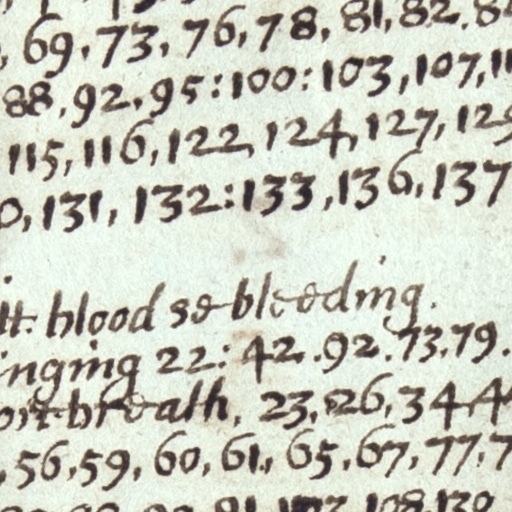 69, 73, 76, 78, 81, 82, 8
88, 92, 95: 100: 103, 107, 11
115, 116, 122, 124, 127, 129
0, 131, 132: 133, 136, 137
blood se bleeding.
inging 22: 42. 92. 73. 79.
ort breath, 23, 26, 34, 4
, 56, 59, 60, 61, 65, 67, 77, 7
91, 103, 108, 130